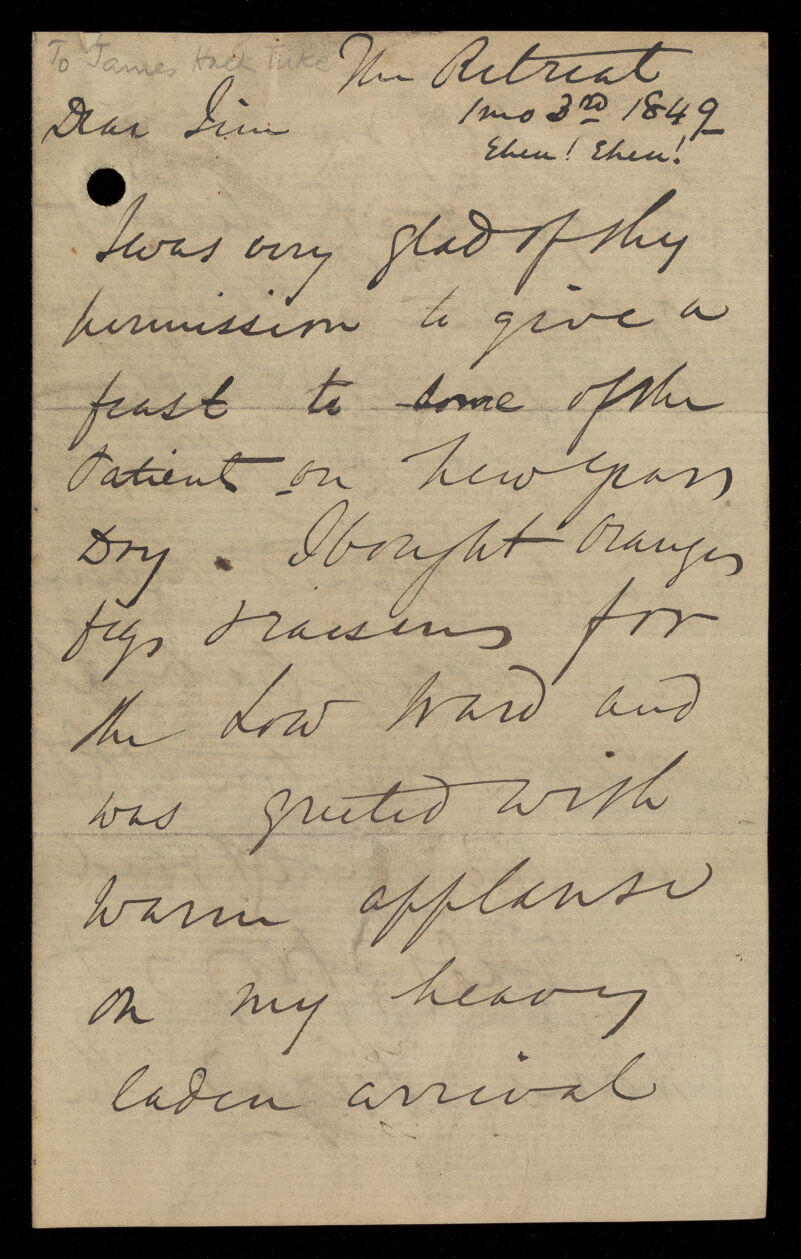 To James Hack Tuke
The Retreat
1mo 3rd 1849
Eheu! Eheu!
Dear Jim
I was very glad of thy
permission to give a
feast to some of the
Patients on New Years
Day. I bought Oranges
figs & raisens for
the Low Ward and
was greeted with
warm applause
on my heavy
laden arrival